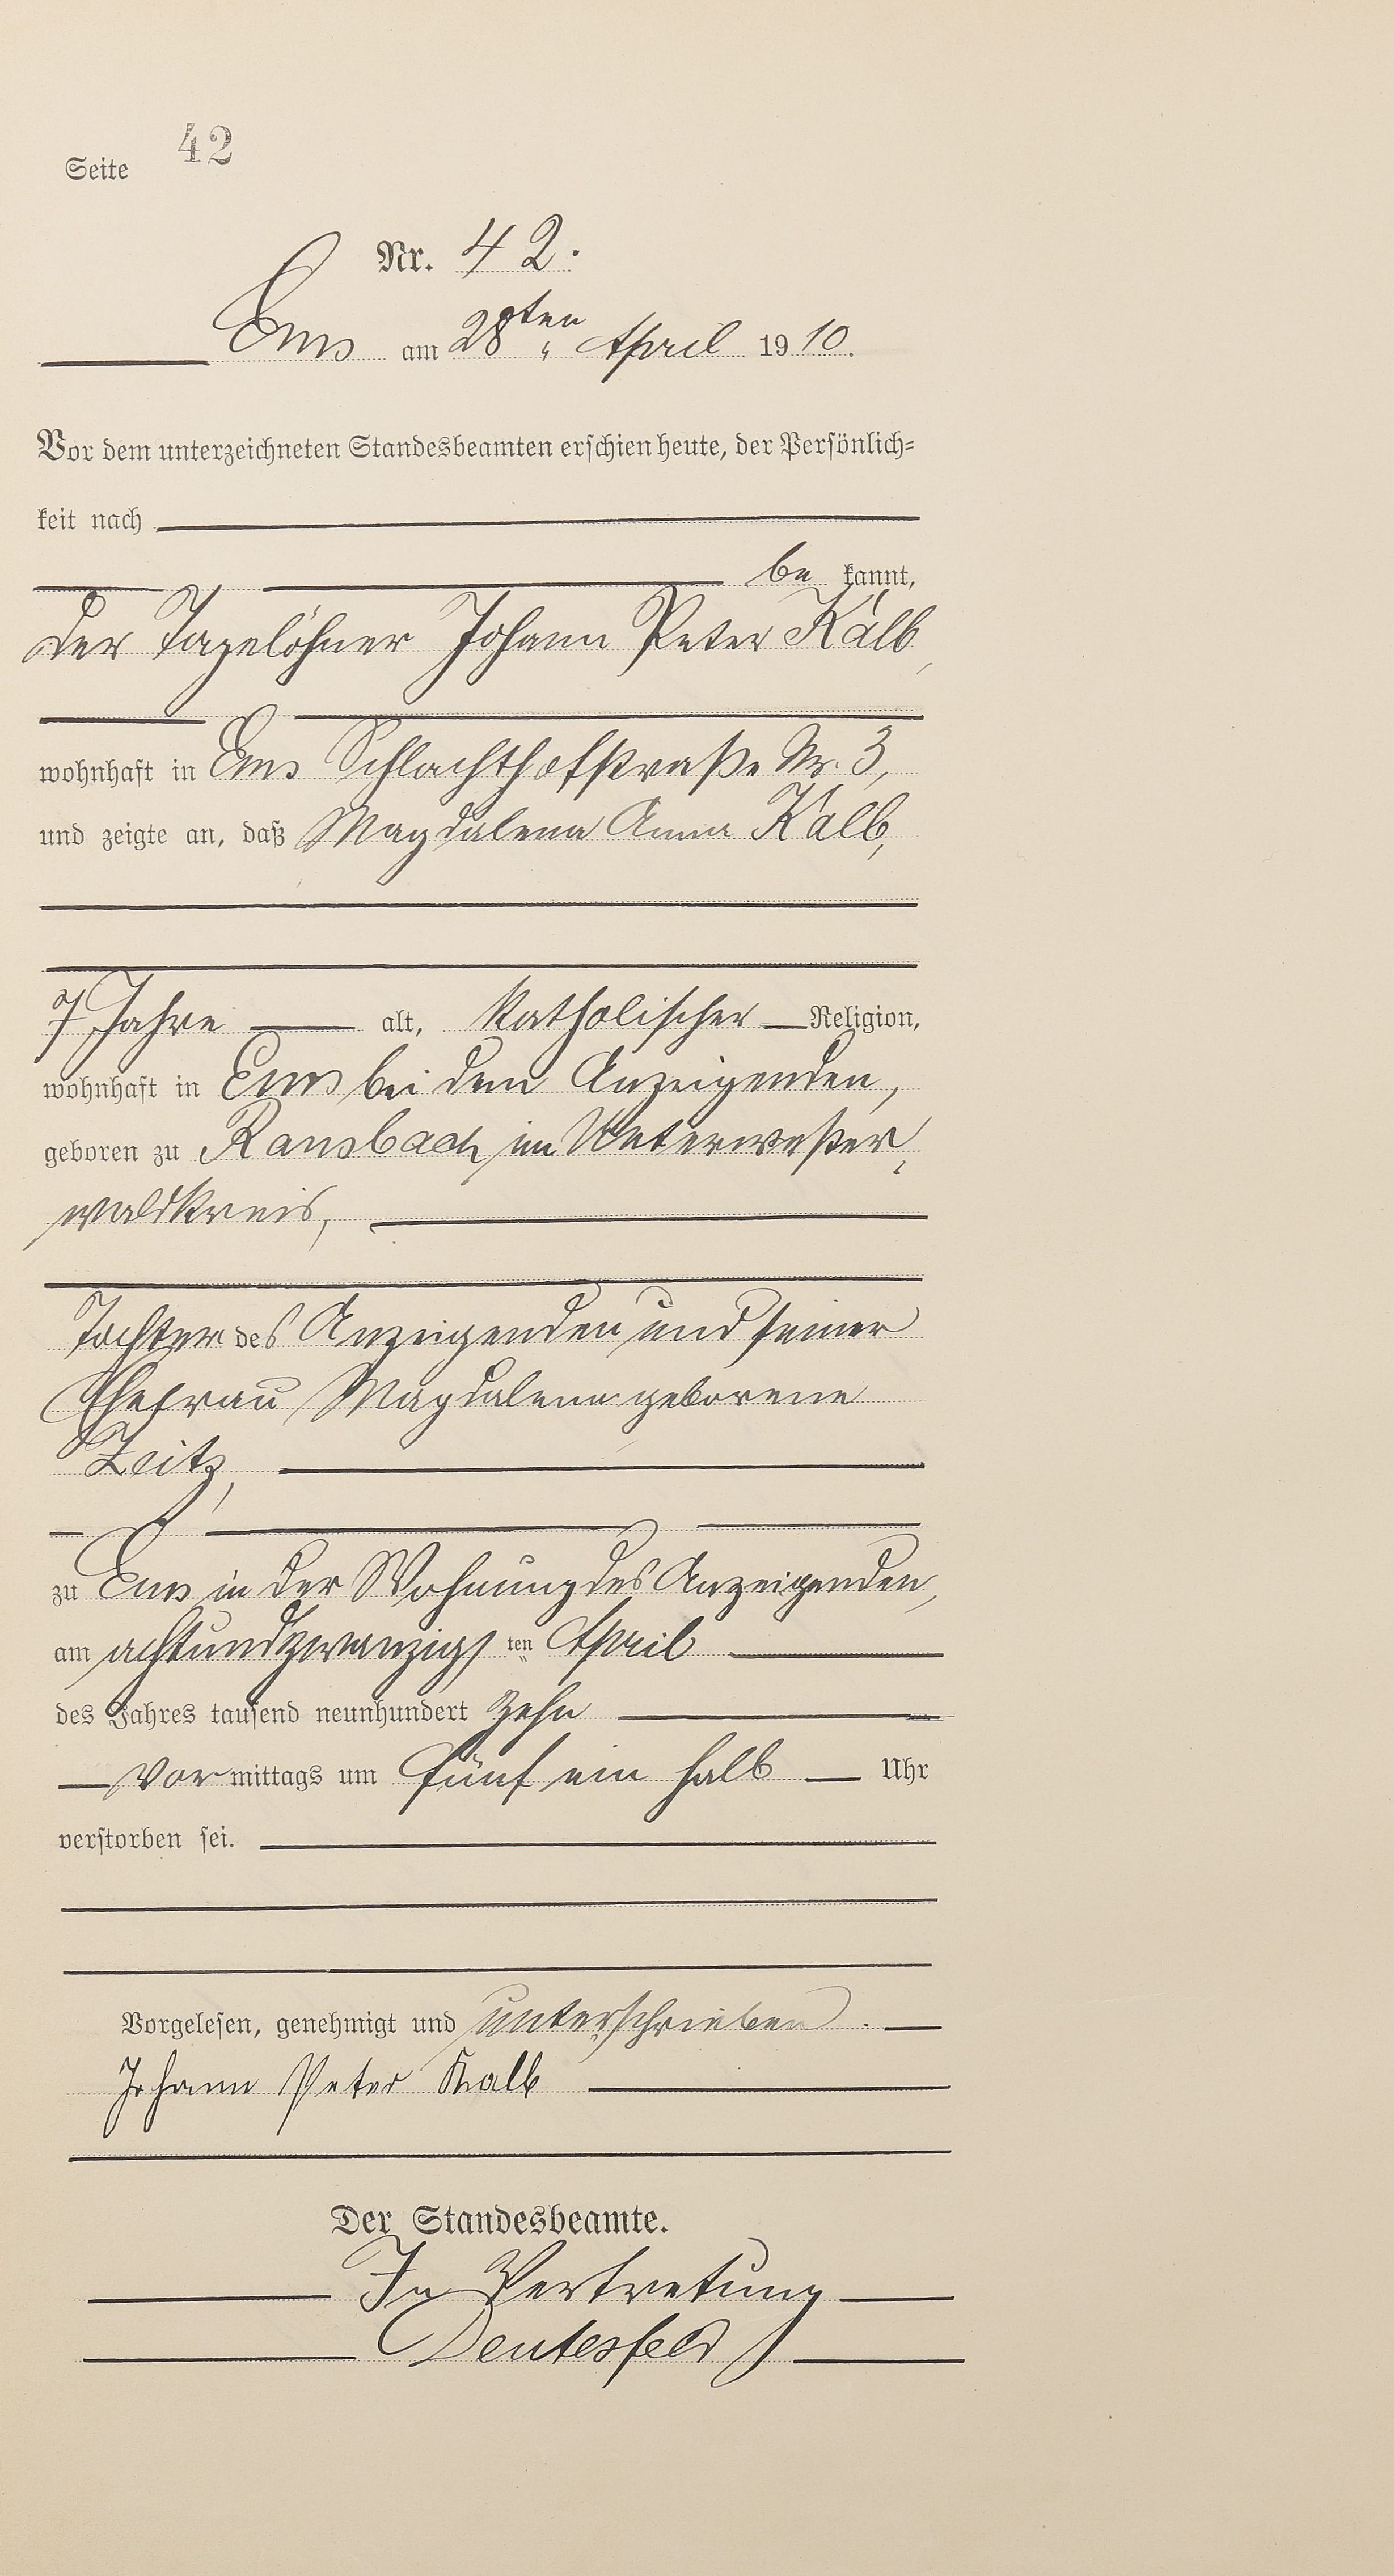 Seite 42
Nr. 42.
Ems am 28ten April 1910.
Vor dem unterzeichneten Standesbeamten erschien heute, der Persönlich=
keit nach
be kannt,
der Tagelöhner Johann Peter Kalb,
wohnhaft in Ems Schlachthofstraße Nr. 3,
und zeigte an, daß Magdalena Anna Kalb,
7 Jahre alt, katholischer Religion,
wohnhaft in Ems bei dem Anzeigenden,
geboren zu Ransbach im Unterwester-
waldkreis,
Tochter des Anzeigenden und seiner
Ehefrau Magdalena geborene
Zeitz,
zu Ems in der Wohnung des Anzeigenden,
am achtundzwanzigsten April
des Jahres tausend neunhundert zehn
Vormittags um fünf ein halb Uhr
verstorben sei.
Vorgelesen, genehmigt und unterschrieben.
Johann Peter Kalb
Der Standesbeamte.
In Vertretung
Deutesfeld